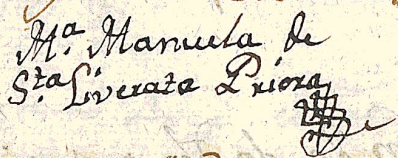 M.ª Manuela de
S.ta Liverata Priora